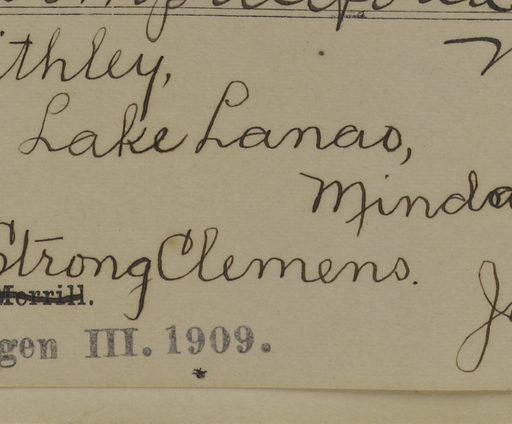 ithley,
Lake Lanao,
Minda
Strong Clemens.
Merrill.
gen III. 1909.
*